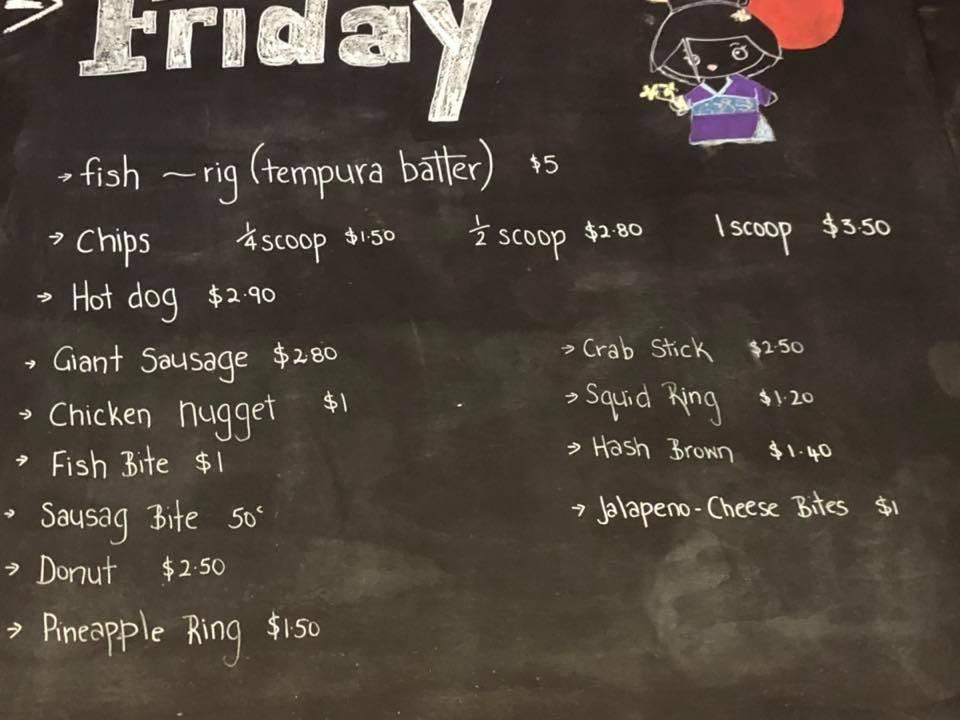 Friday
→ fish ~ rig (tempura batter) $5
→ Chips 1/4 scoop $1.50 1/2 scoop $2.80 1 scoop $3.50
→ Hot dog $2.90
→ Giant Sausage $2.80
→ Chicken nugget $1
→ Fish Bite $1
→ Sausag Bite 50c
→ Donut $2.50
→ Pineapple Ring $1.50
→ Crab Stick $2.50
→ Squid Ring $1.20
→ Hash Brown $1.40
→ Jalapeno-Cheese Bites $1